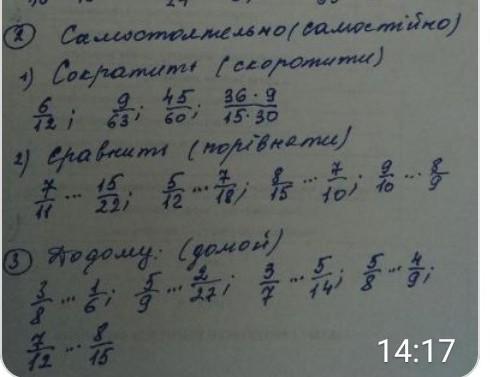 ② Самостоятельно (самостійно)
1) Сократить (скоротити)
6/12; 9/63; 45/60; 36·9/15·30
2) Сравнить (порівняти)
7/11 ... 15/22; 5/12 ... 7/18; 8/15 ... 7/10; 9/10 ... 8/9
③ Додому: (домой)
3/8 ... 1/6; 5/9 ... 2/27; 3/7 ... 5/14; 5/8 ... 4/9;
7/12 ... 8/15
14:17